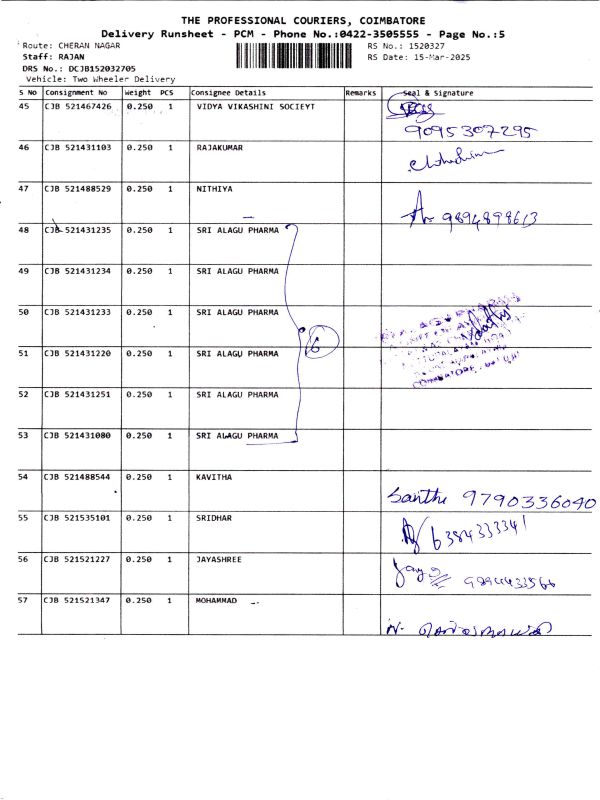 THE PROFESSIONAL COURIERS, COIMBATORE
Delivery Runsheet - PCM - Phone No.:0422-3505555 - Page No.:5
Route: CHERAN NAGAR RS No.: 1520327
Staff: RAJAN RS Date: 15-Mar-2025
DRS No.: DCJB152032705
Vehicle: Two Wheeler Delivery
S No Consignment No Weight PCS Consignee Details Remarks Seal & Signature
45 CJB 521467426 0.250 1 VIDYA VIKASHINI SOCIEYT
9095307295
46 CJB 521431103 0.250 1 RAJAKUMAR
47 CJB 521488529 0.250 1 NITHIYA
9894898613
48 CJB 521431235 0.250 1 SRI ALAGU PHARMA
49 CJB 521431234 0.250 1 SRI ALAGU PHARMA
50 CJB 521431233 0.250 1 SRI ALAGU PHARMA
6
51 CJB 521431220 0.250 1 SRI ALAGU PHARMA
52 CJB 521431251 0.250 1 SRI ALAGU PHARMA
53 CJB 521431080 0.250 1 SRI ALAGU PHARMA
54 CJB 521488544 0.250 1 KAVITHA
Santhi 9790336040
55 CJB 521535101 0.250 1 SRIDHAR
6384333341
56 CJB 521521227 0.250 1 JAYASHREE
9894433566
57 CJB 521521347 0.250 1 MOHAMMAD